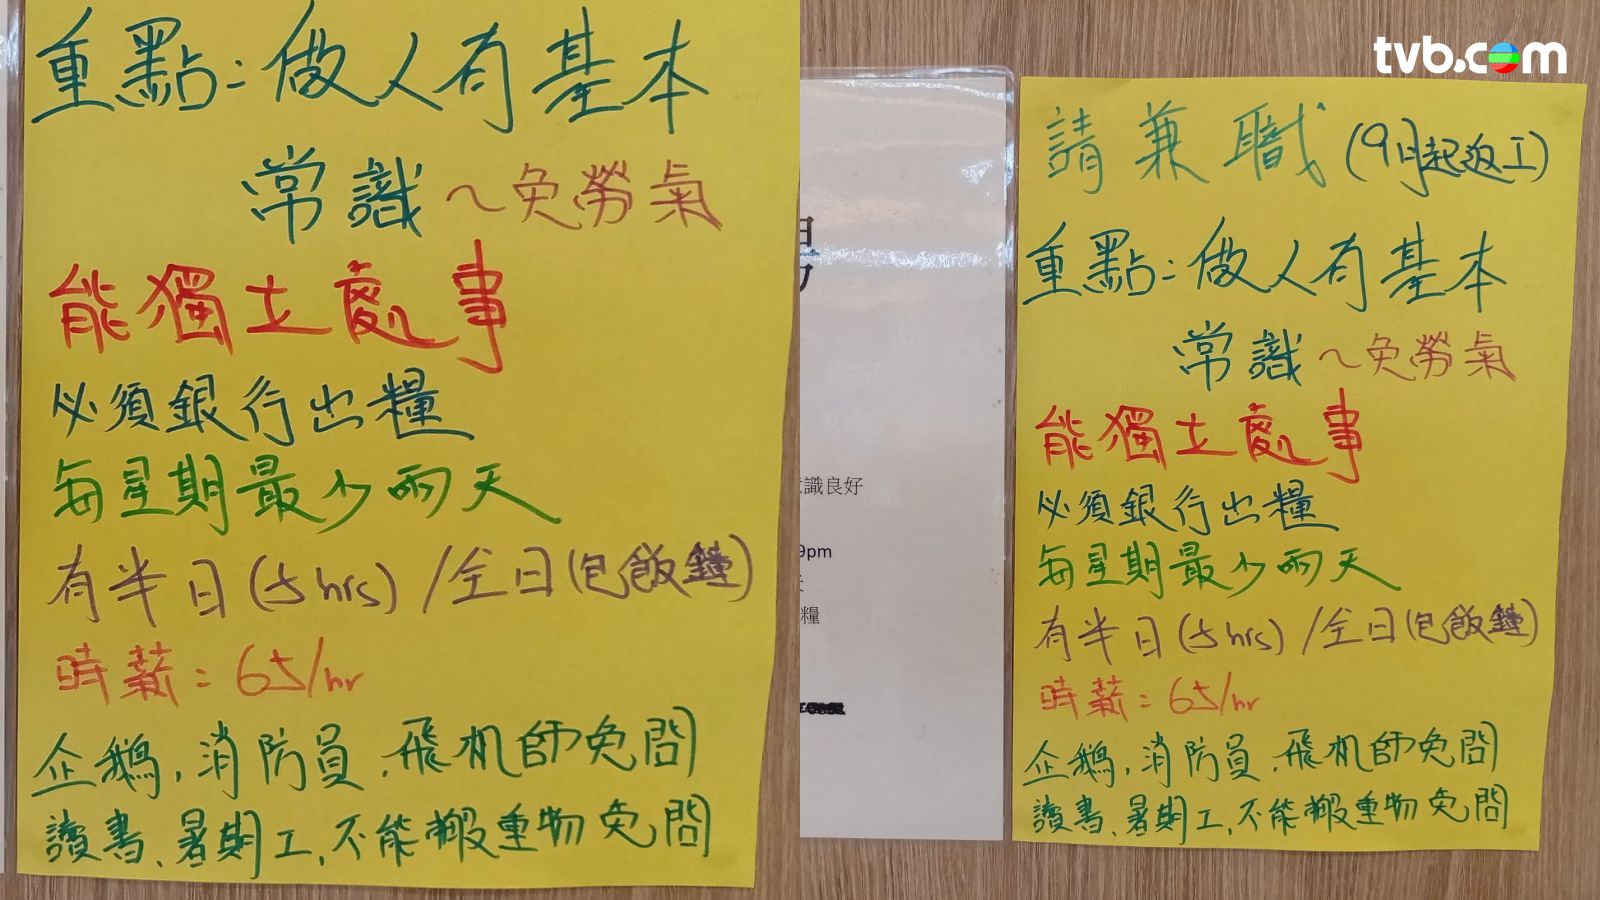 重點：做人有基本
常識～免勞氣
能獨立處事
必須銀行出糧
每星期最少兩天
有半日(5hrs)/全日(包飯鐘)
時薪：65/hr
企鵝，消防員，飛机師免問
讀書、暑期工，不能搬重物免問
tvb.com
請兼職(9月起返工)
重點：做人有基本
常識～免勞氣
能獨立處事
必須銀行出糧
每星期最少兩天
有半日(5hrs)/全日(包飯鐘)
時薪：65/hr
企鵝，消防員，飛机師免問
讀書、暑期工，不能搬重物免問
識良好
9pm
糧